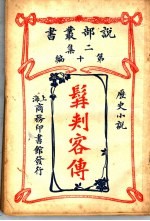 說部叢書
二集
第十編
歷史小說
髯刺客傳
上海
商務印書館發行